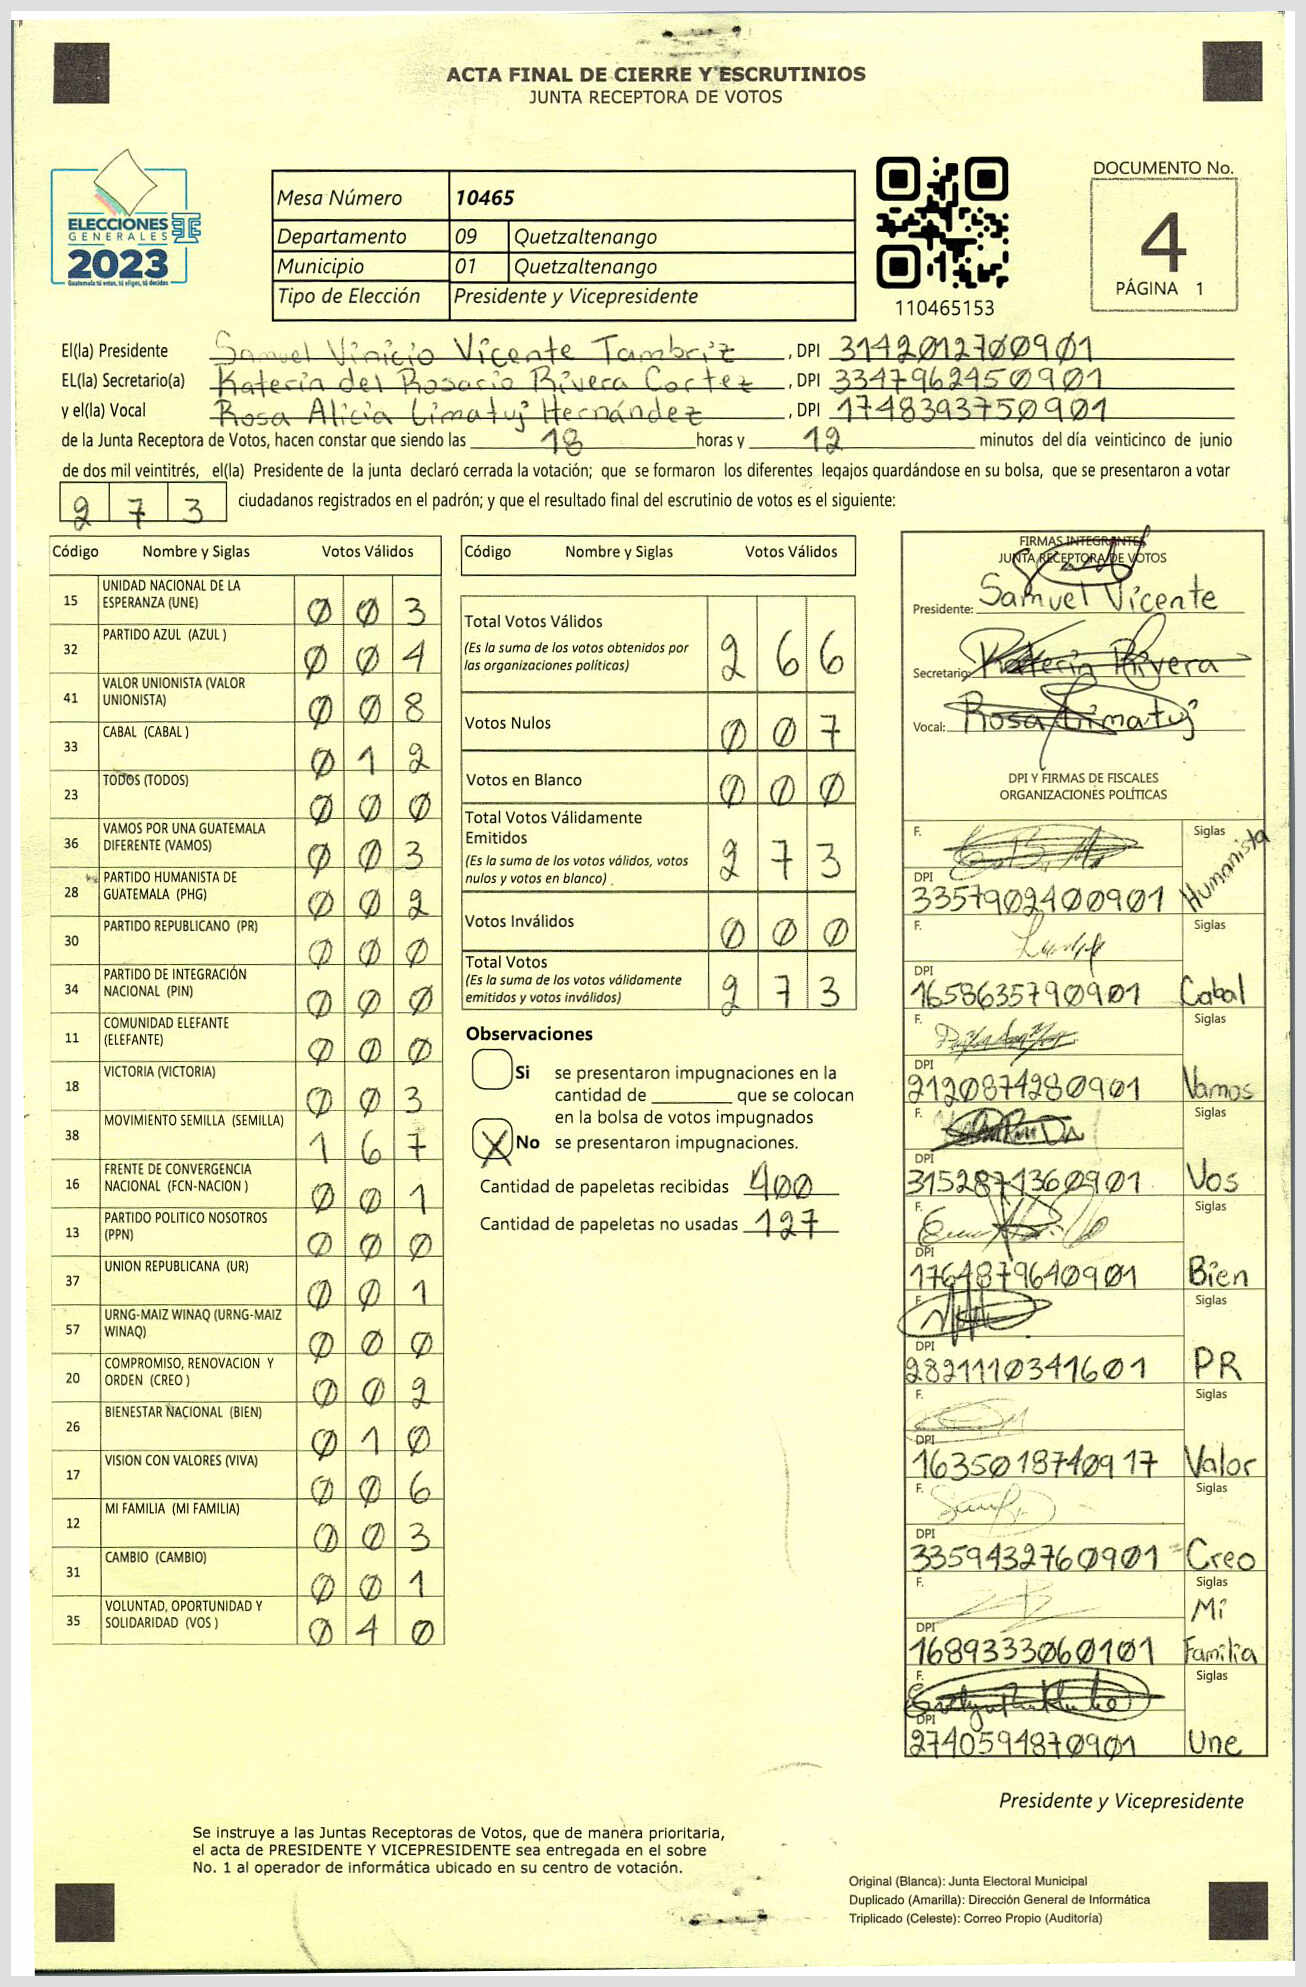 ACTA FINAL DE CIERRE Y ESCRUTINIOS
JUNTA RECEPTORA DE VOTOS
ELECCIONES
GENERALES
2023
Guatemala tú votas, tú eliges, tú decides
Mesa Número 10465
Departamento 09 Quetzaltenango
Municipio 01 Quetzaltenango
Tipo de Elección Presidente y Vicepresidente
110465153
DOCUMENTO No.
4
PÁGINA 1
El(la) Presidente Samuel Vinicio Vicente Tambriz , DPI 3142012700901
EL(la) Secretario(a) Katerin del Rosario Rivera Cortez , DPI 3347962450901
y el(la) Vocal Rosa Alicia Limatuj Hernández , DPI 1748393750901
de la Junta Receptora de Votos, hacen constar que siendo las 18 horas y 12 minutos del día veinticinco de junio
de dos mil veintitrés, el(la) Presidente de la junta declaró cerrada la votación; que se formaron los diferentes legajos guardándose en su bolsa, que se presentaron a votar
273 ciudadanos registrados en el padrón; y que el resultado final del escrutinio de votos es el siguiente:
Código Nombre y Siglas Votos Válidos
15 UNIDAD NACIONAL DE LA ESPERANZA (UNE) 0 0 3
32 PARTIDO AZUL (AZUL ) 0 0 4
41 VALOR UNIONISTA (VALOR UNIONISTA) 0 0 8
33 CABAL (CABAL ) 0 1 2
23 TODOS (TODOS) 0 0 0
36 VAMOS POR UNA GUATEMALA DIFERENTE (VAMOS) 0 0 3
28 PARTIDO HUMANISTA DE GUATEMALA (PHG) 0 0 2
30 PARTIDO REPUBLICANO (PR) 0 0 0
34 PARTIDO DE INTEGRACIÓN NACIONAL (PIN) 0 0 0
11 COMUNIDAD ELEFANTE (ELEFANTE) 0 0 0
18 VICTORIA (VICTORIA) 0 0 3
38 MOVIMIENTO SEMILLA (SEMILLA) 1 6 7
16 FRENTE DE CONVERGENCIA NACIONAL (FCN-NACION ) 0 0 1
13 PARTIDO POLITICO NOSOTROS (PPN) 0 0 0
37 UNION REPUBLICANA (UR) 0 0 1
57 URNG-MAIZ WINAQ (URNG-MAIZ WINAQ) 0 0 0
20 COMPROMISO, RENOVACION Y ORDEN (CREO ) 0 0 2
26 BIENESTAR NACIONAL (BIEN) 0 1 0
17 VISION CON VALORES (VIVA) 0 0 6
12 MI FAMILIA (MI FAMILIA) 0 0 3
31 CAMBIO (CAMBIO) 0 0 1
35 VOLUNTAD, OPORTUNIDAD Y SOLIDARIDAD (VOS ) 0 4 0
Código Nombre y Siglas Votos Válidos
Total Votos Válidos 2 6 6
(Es la suma de los votos obtenidos por
las organizaciones políticas)
Votos Nulos 0 0 7
Votos en Blanco 0 0 0
Total Votos Válidamente
Emitidos 2 7 3
(Es la suma de los votos válidos, votos
nulos y votos en blanco)
Votos Inválidos 0 0 0
Total Votos 2 7 3
(Es la suma de los votos válidamente
emitidos y votos inválidos)
Observaciones
Si se presentaron impugnaciones en la
cantidad de ________ que se colocan
en la bolsa de votos impugnados
X No se presentaron impugnaciones.
Cantidad de papeletas recibidas 400
Cantidad de papeletas no usadas 127
FIRMAS INTEGRANTES
JUNTA RECEPTORA DE VOTOS
Presidente: Samuel Vicente
Secretario: Katerin Rivera
Vocal: Rosa Limatuj
DPI Y FIRMAS DE FISCALES
ORGANIZACIONES POLÍTICAS
F. Siglas
DPI 3357902400901 Humanista
F. Siglas
DPI 1658635790901 Cabal
F. Siglas
DPI 2120874280901 Vamos
F. Siglas
DPI 3152871360901 Vos
F. Siglas
DPI 1764879640901 Bien
F. Siglas
DPI 2821110341601 PR
F. Siglas
DPI 1635018740917 Valor
F. Siglas
DPI 3359432760901 Creo
F. Siglas
DPI 1689333060101 Mi Familia
F. Siglas
DPI 2740594870901 Une
Presidente y Vicepresidente
Se instruye a las Juntas Receptoras de Votos, que de manera prioritaria,
el acta de PRESIDENTE Y VICEPRESIDENTE sea entregada en el sobre
No. 1 al operador de informática ubicado en su centro de votación.
Original (Blanca): Junta Electoral Municipal
Duplicado (Amarilla): Dirección General de Informática
Triplicado (Celeste): Correo Propio (Auditoría)